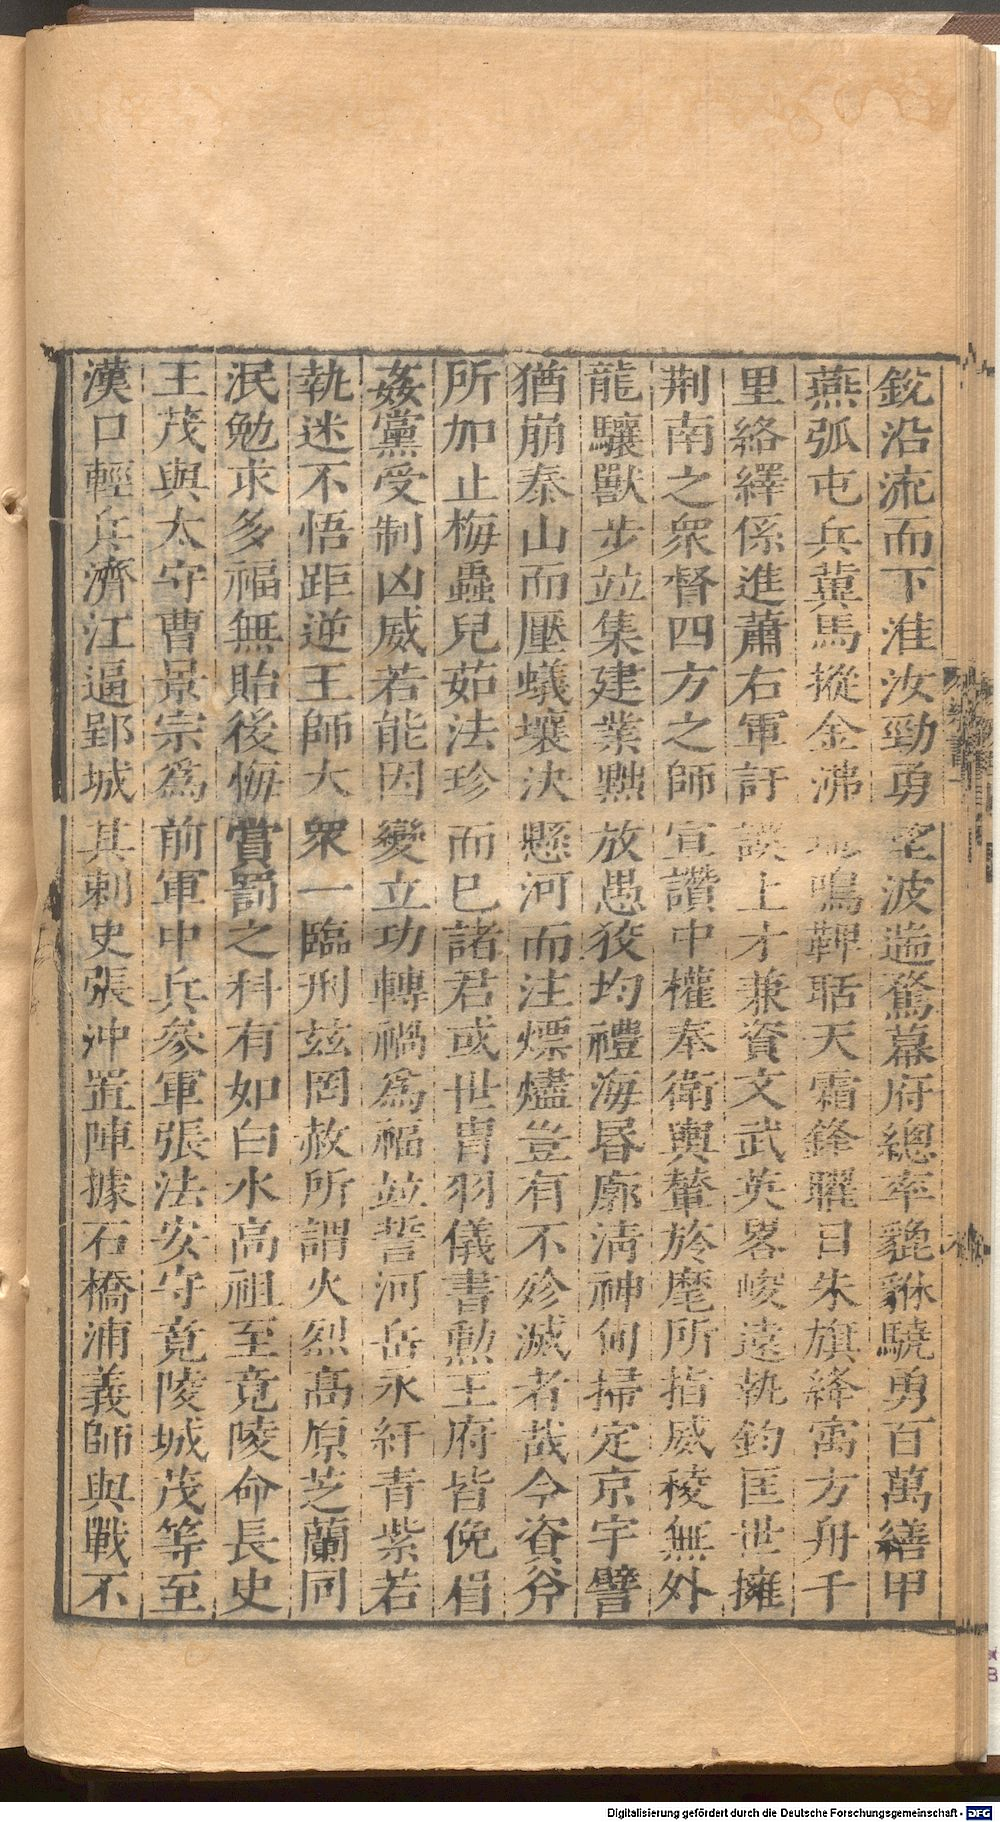 銳沿流而下淮汝勁勇望波遄騖幕府總率貔貅驍勇百萬繕甲
燕弧屯兵冀馬摐金沸地鳴鞞聒天霜鋒曜日朱旗絳㝢方舟千
里絡繹係進蕭右軍訏謨上才兼資文武英畧峻遠執鈞匡世擁
荆南之衆督四方之師宣讚中權奉衛輿輦於麾所指威稜無外
龍驤獸步竝集建業黜放愚狡均禮海昏廓淸神甸掃定京宇譬
猶崩泰山而壓蟻壤決懸河而注熛燼豈有不殄滅者哉今資斧
所加止梅蟲兒茹法珍而已諸君或世冑羽儀書勲王府皆俛眉
姦黨受制凶威若能因變立功轉禍爲福竝誓河岳永紆青紫若
執迷不悟距逆王師大衆一臨刑玆罔赦所謂火烈髙原芝蘭同
泯勉求多福無貽後悔賞罰之科有如白水高祖至竟陵命長史
王茂與太守曹景宗爲前軍中兵參軍張法安守竟陵城茂等至
漢口輕兵濟江逼郢城其刺史張沖置陣據石橋浦義師與戰不
Digitalisierung gefördert durch die Deutsche Forschungsgemeinschaft - DFG